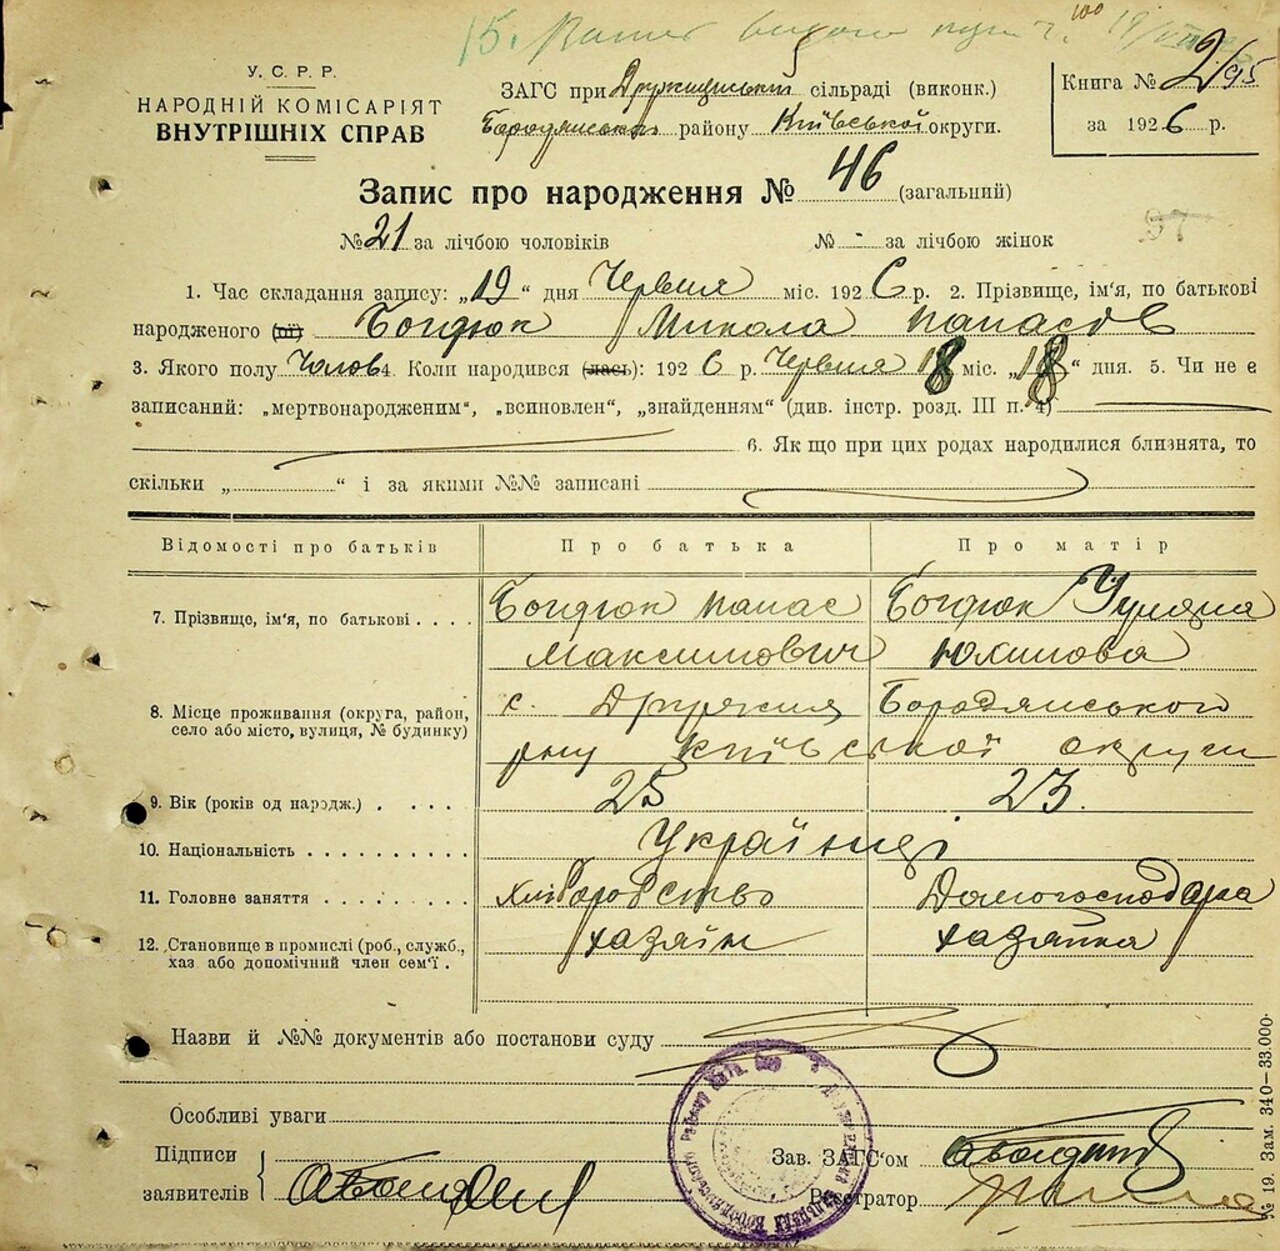 15.
У.С.Р.Р.
НАРОДНІЙ КОМІСАРІЯТ
ВНУТРІШНІХ СПРАВ
ЗАГС при Дружнянській сільраді (виконк.)
Бородянськ. району Київської округи.
Книга № 2/95
за 1926 р.
Запис про народження № 46 (загальний)
37
№ 21 за лічбою чоловіків № - за лічбою жінок
1. Час складання запису: „19“ дня Червня міс. 1926 р. 2. Прізвище, ім'я, по батькові
народженого (ої) Богдюк Микола Панасов
3. Якого полу Чолов 4. Коли народився (лась): 1926 р. Червня 18 міс. „18“ дня. 5. Чи не є
записаний: „мертвонародженим“, „всиновлен“, „знайденням“ (див. інстр. розд. III п. 4)
6. Як що при цих родах народилися близнята, то
скільки „ “ і за якими №№ записані
Відомості про батьків Про батька Про матір
7. Прізвище, ім'я, по батькові . . . . Богдюк Панас Богдюк Уляна
Максимович Юхимова
8. Місце проживання (округа, район, с. Дружня Бородянського
село або місто, вулиця, № будинку) рну Київської округи
9. Вік (років од народж.) . . . . 25 23.
10. Національність . . . . . . . . . Українці
11. Головне заняття . . . . . . . . . Хліборобство Домогосподарка
12. Становище в промислі (роб., служб., хазяїн хазяйка
хаз. або допомічний член сем'ї .
Назви й №№ документів або постанови суду
Особливі уваги
Підписи Зав. ЗАГС'ом
заявителів Реєстратор
№ 19. Зам. 340—33.000.